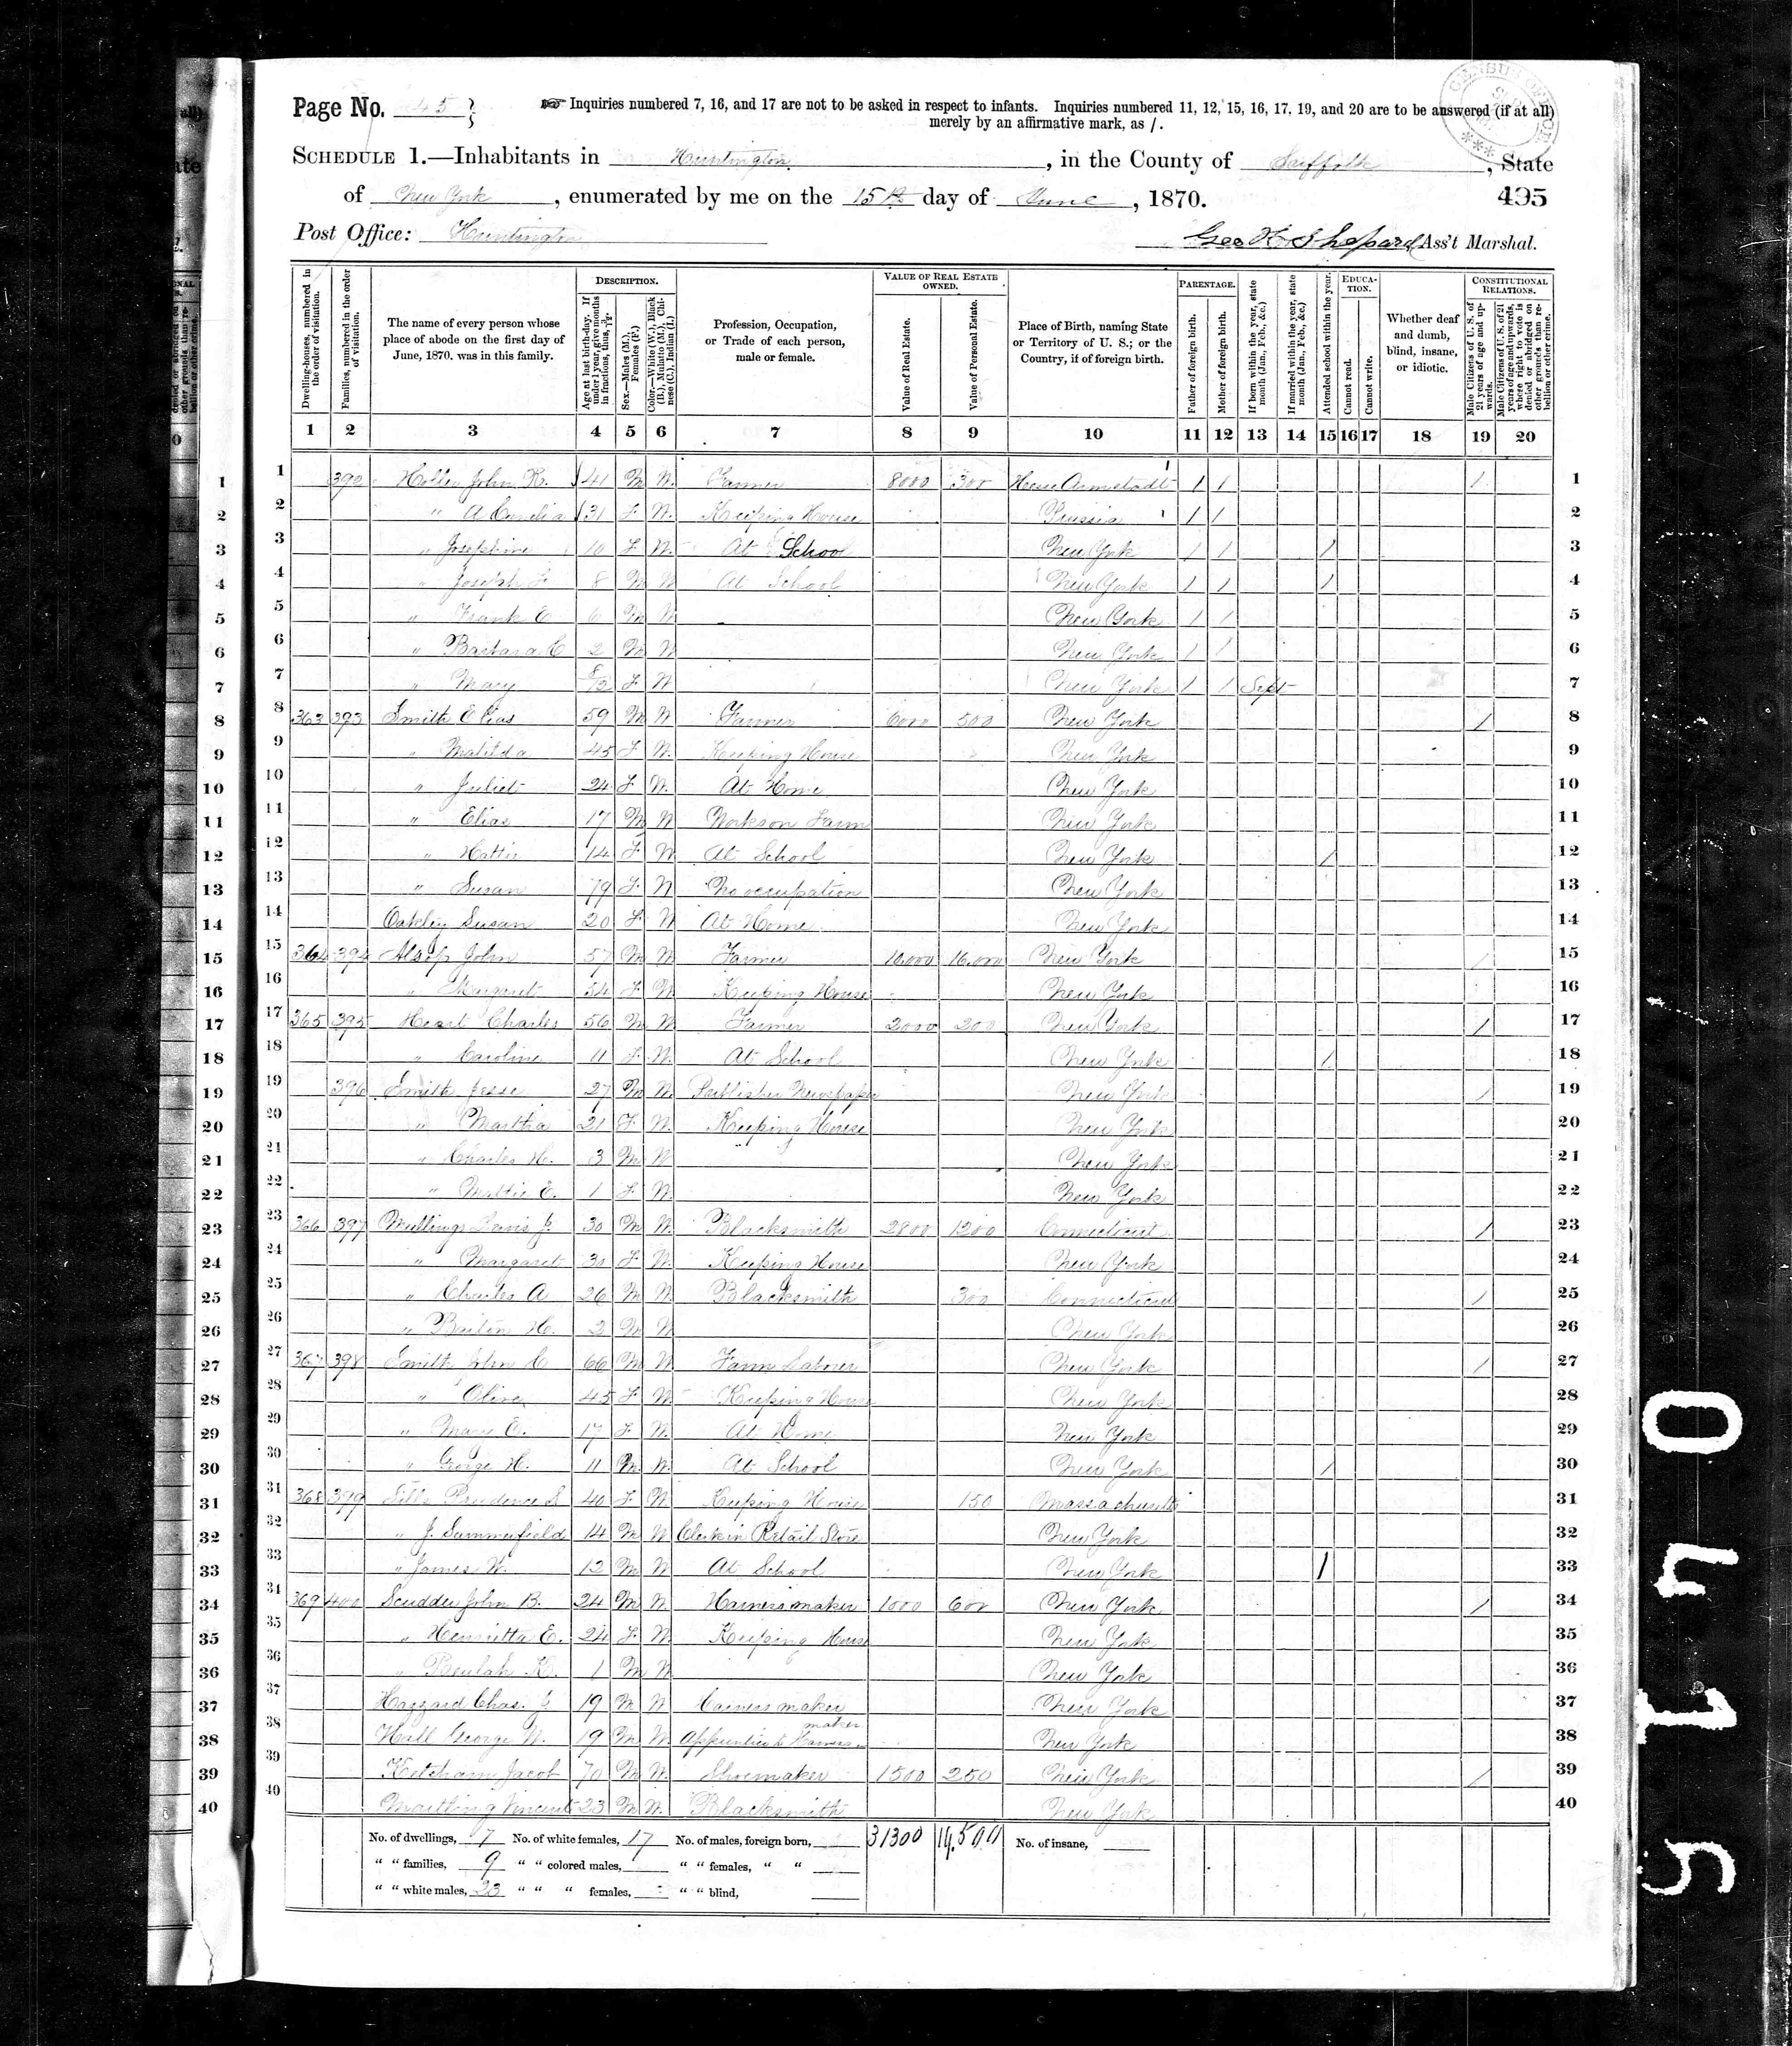 Page No. 45
Inquiries numbered 7, 16, and 17 are not to be asked in respect to infants. Inquiries numbered 11, 12, 15, 16, 17, 19, and 20 are to be answered (if at all)
merely by an affirmative mark, as /.
SCHEDULE 1.—Inhabitants in Huntington, in the County of Suffolk, State
of New York, enumerated by me on the 15th day of June, 1870. 495
Post Office: Huntington Geo H Shepard Ass't Marshal.
DESCRIPTION. VALUE OF REAL ESTATE OWNED. PARENTAGE. EDUCATION. CONSTITUTIONAL RELATIONS.
Dwelling-houses, numbered in the order of visitation.
Families, numbered in the order of visitation.
The name of every person whose place of abode on the first day of June, 1870, was in this family.
Age at last birth-day. If under 1 year, give months in fractions, thus, 3/12.
Sex.—Males (M.), Females (F.)
Color.—White (W.), Black (B.), Mulatto (M.), Chinese (C.), Indian (I.)
Profession, Occupation, or Trade of each person, male or female.
Value of Real Estate.
Value of Personal Estate.
Place of Birth, naming State or Territory of U. S.; or the Country, if of foreign birth.
Father of foreign birth.
Mother of foreign birth.
If born within the year, state month (Jan., Feb., &c.)
If married within the year, state month (Jan., Feb., &c.)
Attended school within the year.
Cannot read.
Cannot write.
Whether deaf and dumb, blind, insane, or idiotic.
Male Citizens of U. S. of 21 years of age and upwards.
Male Citizens of U. S. of 21 years of age and upwards, where right to vote is denied or abridged on other grounds than rebellion or other crime.
1 2 3 4 5 6 7 8 9 10 11 12 13 14 15 16 17 18 19 20
1 392 John 41 M W. Farmer 8000 300 Hesse Armstadt / / / 1
2 " 31 F. W. Keeping House Prussia / / 2
3 " Josephine 10 F W. At School New York / / / 3
4 " Joseph F 8 M W At School New York / / / 4
5 " Frank E 6 M W New York / / 5
6 " Barbara C 2 M W New York / / 6
7 " Mary 8/12 F W New York / / Sept 7
8 363 393 Smith Elias 59 M W Farmer 6000 500 New York / 8
9 " Matilda 45 F W. Keeping House New York 9
10 " Juliet 24 F W. At Home New York 10
11 " Elias 17 M W Works on Farm New York 11
12 " Hattie 14 F W At School New York / 12
13 " Susan 79 F. W No occupation New York 13
14 Oakley Susan 20 F W At Home New York 14
15 364 394 Alsop John 57 M W Farmer 10.000 16.000 New York / 15
16 " Margaret 54 F W Keeping House New York 16
17 365 395 Charles 56 M W Farmer 2000 200 New York / 17
18 " Caroline 11 F. W. At School New York / 18
19 396 Smith Jesse 27 M W Publisher Newspaper New York / 19
20 " Martha 21 F. W. Keeping House New York 20
21 " Charles H. 3 M W New York 21
22 " Mattie E. 1 F W. New York 22
23 366 397 Mullings Lewis J. 30 M W. Blacksmith 2800 1200 Connecticut / 23
24 " Margaret 30 F W. Keeping House New York 24
25 " Charles A 26 M W. Blacksmith 300 Connecticut / 25
26 " H. 2 M W New York 26
27 367 398 Smith John C 66 M W Farm Laborer New York / 27
28 " Olive 45 F W Keeping House New York 28
29 " Mary E. 17 F W. At Home New York 29
30 " George H. 11 M. W. At School New York / 30
31 368 399 Prudence S 40 F. W Keeping House 150 Massachusetts 31
32 " J. Summerfield 14 M W Clerk in Retail Store New York 32
33 " James W. 12 M W At School New York / 33
34 369 400 Scudder John B. 24 M W. Harness maker 1000 600 New York / 34
35 " Henrietta E. 24 F W. Keeping House New York 35
36 " Beulah K. 1 M W. New York 36
37 Hazzard Chas. J 19 M W Harness maker New York 37
38 Hall George W. 19 M W Apprentice to Harness maker New York 38
39 Ketcham Jacob 70 M W. Shoemaker 1500 250 New York / 39
40 Maitling Vincent 23 M W. Blacksmith New York 40
No. of dwellings, 7 No. of white females, 17 No. of males, foreign born, 31300 19.500 No. of insane,
" " families, 9 " " colored males, " " females, " "
" " white males, 23 " " " females, " " blind,